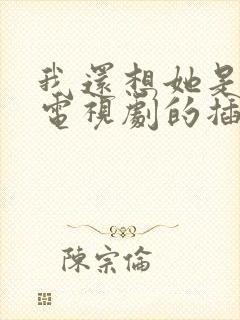 我還想她是
電視劇的插
陳宗倫